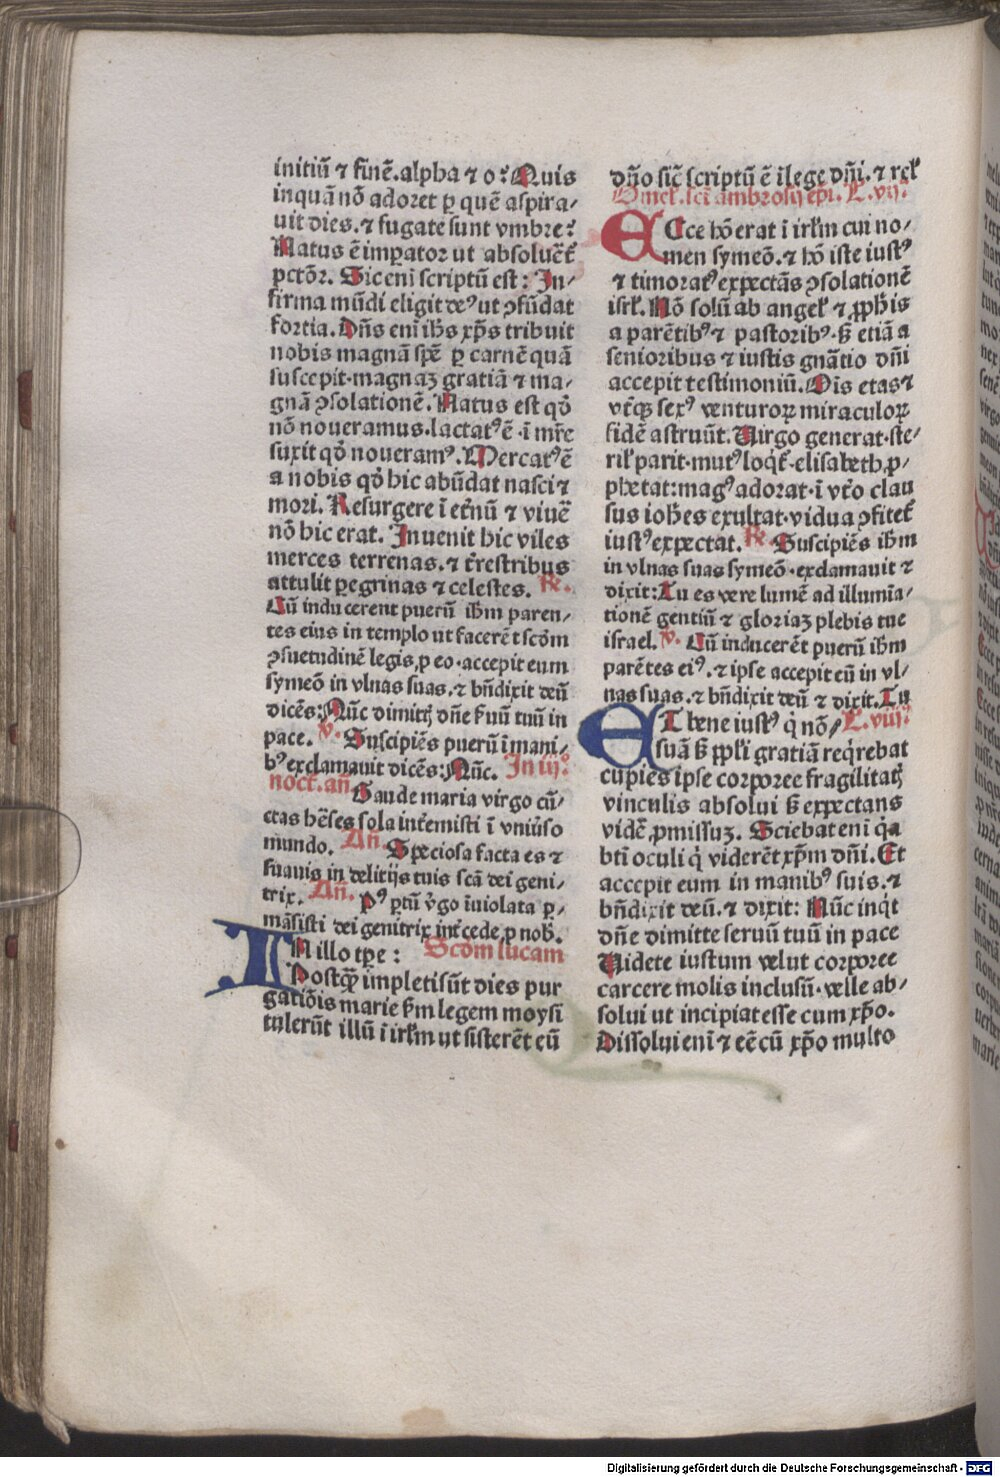 initiū ⁊ finē. alpha ⁊ o: Quis
inquā nō adoret ꝑ quē aspira⸗
uit dies. ⁊ fugate sunt vmbre?
Natus ē imꝑator ut absoluēt᷑
pctōꝝ. Sic eni scriptū est: In⸗
firma mūdi eligit deꝰ ut ꝯfūdat
fortia. Dn̄s eni ih̄s xp̄s tribuit
nobis magnā spē ꝑ carnē quā
suscepit. magnaȝ gratiā ⁊ ma⸗
gnā ꝯsolationē. Natus est qd̄
nō noueramus. lactatꝰ ē. i mr̄e
suxit qd̄ noueramꝰ. Mercatꝰ ē
a nobis qd̄ hic abūdat nasci ⁊
mori. Resurgere i et̄nū ⁊ viuē
nō hic erat. Inuenit hic viles
merces terrenas. ⁊ t̄restribus
attulit ꝑegrinas ⁊ celestes. R̄.
Cū inducerent puerū ih̄m paren⸗
tes eius in templo ut facerēt scd̄m
ꝯsuetudinē legis ꝓ eo. accepit eum
symeō in vlnas suas. ⁊ bn̄dixit deū
dicēs: Nūc dimittꝭ dn̄e s̄uū tuū in
pace. v. Suscipiēs puerū i mani⸗
bꝰ exclamauit dicēs: Nūc. In iijo
noct. an̄ Gaude maria virgo cū⸗
ctas hēses sola int̄emisti ī vniūso
mundo. An̄. Speciosa facta es ⁊
suauis in delitijs tuis sc̄ā dei geni⸗
trix. An̄. Pꝰ ꝑtū v̄go iuiolata ꝑ⸗
māsisti dei genitrix int̄cede ꝓ nob̄.
IN illo tꝑe: Scd̄m lucam
Postꝙ̄ impleti sūt dies pur
gatiōis marie sm̄ legem moysi
tulerūt illū i irlm̄ ut sisterēt eū
dn̄o sic̄ scriptū ē i lege dn̄i. ⁊ rel̄
Omel. sc̄i ambrosij ep̄i. L. vij.
ECce hō erat i irlm̄ cui no⸗
men symeō. ⁊ hō iste iustꝰ
⁊ timoratꝰ expectās ꝯsolationē
isrl̄. Nō solū ab angel̄ ⁊ ꝓph̄is
a parētibꝰ ⁊ pastoribꝰ. s̄ etiā a
senioribus ⁊ iustis gn̄atio dn̄i
accepit testimoniū. Oīs etas ⁊
vt̄qȝ sexꝰ venturoꝝ miraculoꝝ
fidē astruūt. Uirgo generat. ste⸗
ril̄ parit. mutꝰ loq̄t᷑. elisabeth ꝓ⸗
phetat: magꝰ adorat. i vt̄o clau
sus ioh̄es exultat. vidua ꝯfitet᷑
iustꝰ expectat. R̄. Suscipiēs ih̄m
in vlnas suas symeō. exclamauit ⁊
dixit: Tu es vere lumē ad illumīa⸗
tionē gentiū ⁊ gloriaȝ plebis tue
israel. v. Cū inducerēt puerū ih̄m
parētes eiꝰ. ⁊ ipse accepit eū in vl⸗
nas suas. ⁊ bn̄dixit deū ⁊ dixit. Tu
ET bene iustꝰ q̇ nō L. viij.
suā s̄ ppl̄i gratiā req̇rebat
cupiēs ipse corporee fragilitatꝭ
vinculis absolui s̄ expectans
vidē ꝓmissuȝ. Sciebat eni q̇a
bt̄i oculi q̇ viderēt xp̄m dn̄i. Et
accepit eum in manibꝰ suis. ⁊
bn̄dixit deū. ⁊ dixit: Nūc inq̇t
dn̄e dimitte seruū tuū in pace
Uidete iustum velut corporee
carcere molis inclusū. velle ab⸗
solui ut incipiat esse cum xp̄o.
Dissolui eni ⁊ eē cū xp̄o multo
Digitalisierung gefördert durch die Deutsche Forschungsgemeinschaft - DFG